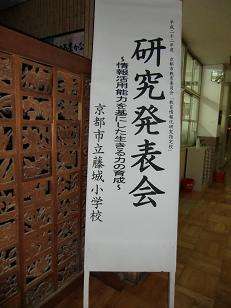 平成二十一年度 京都市教育委員会「教育情報化研究指定校」
研究発表会
~情報活用能力を基にした生きる力の育成~
京都市立藤城小学校